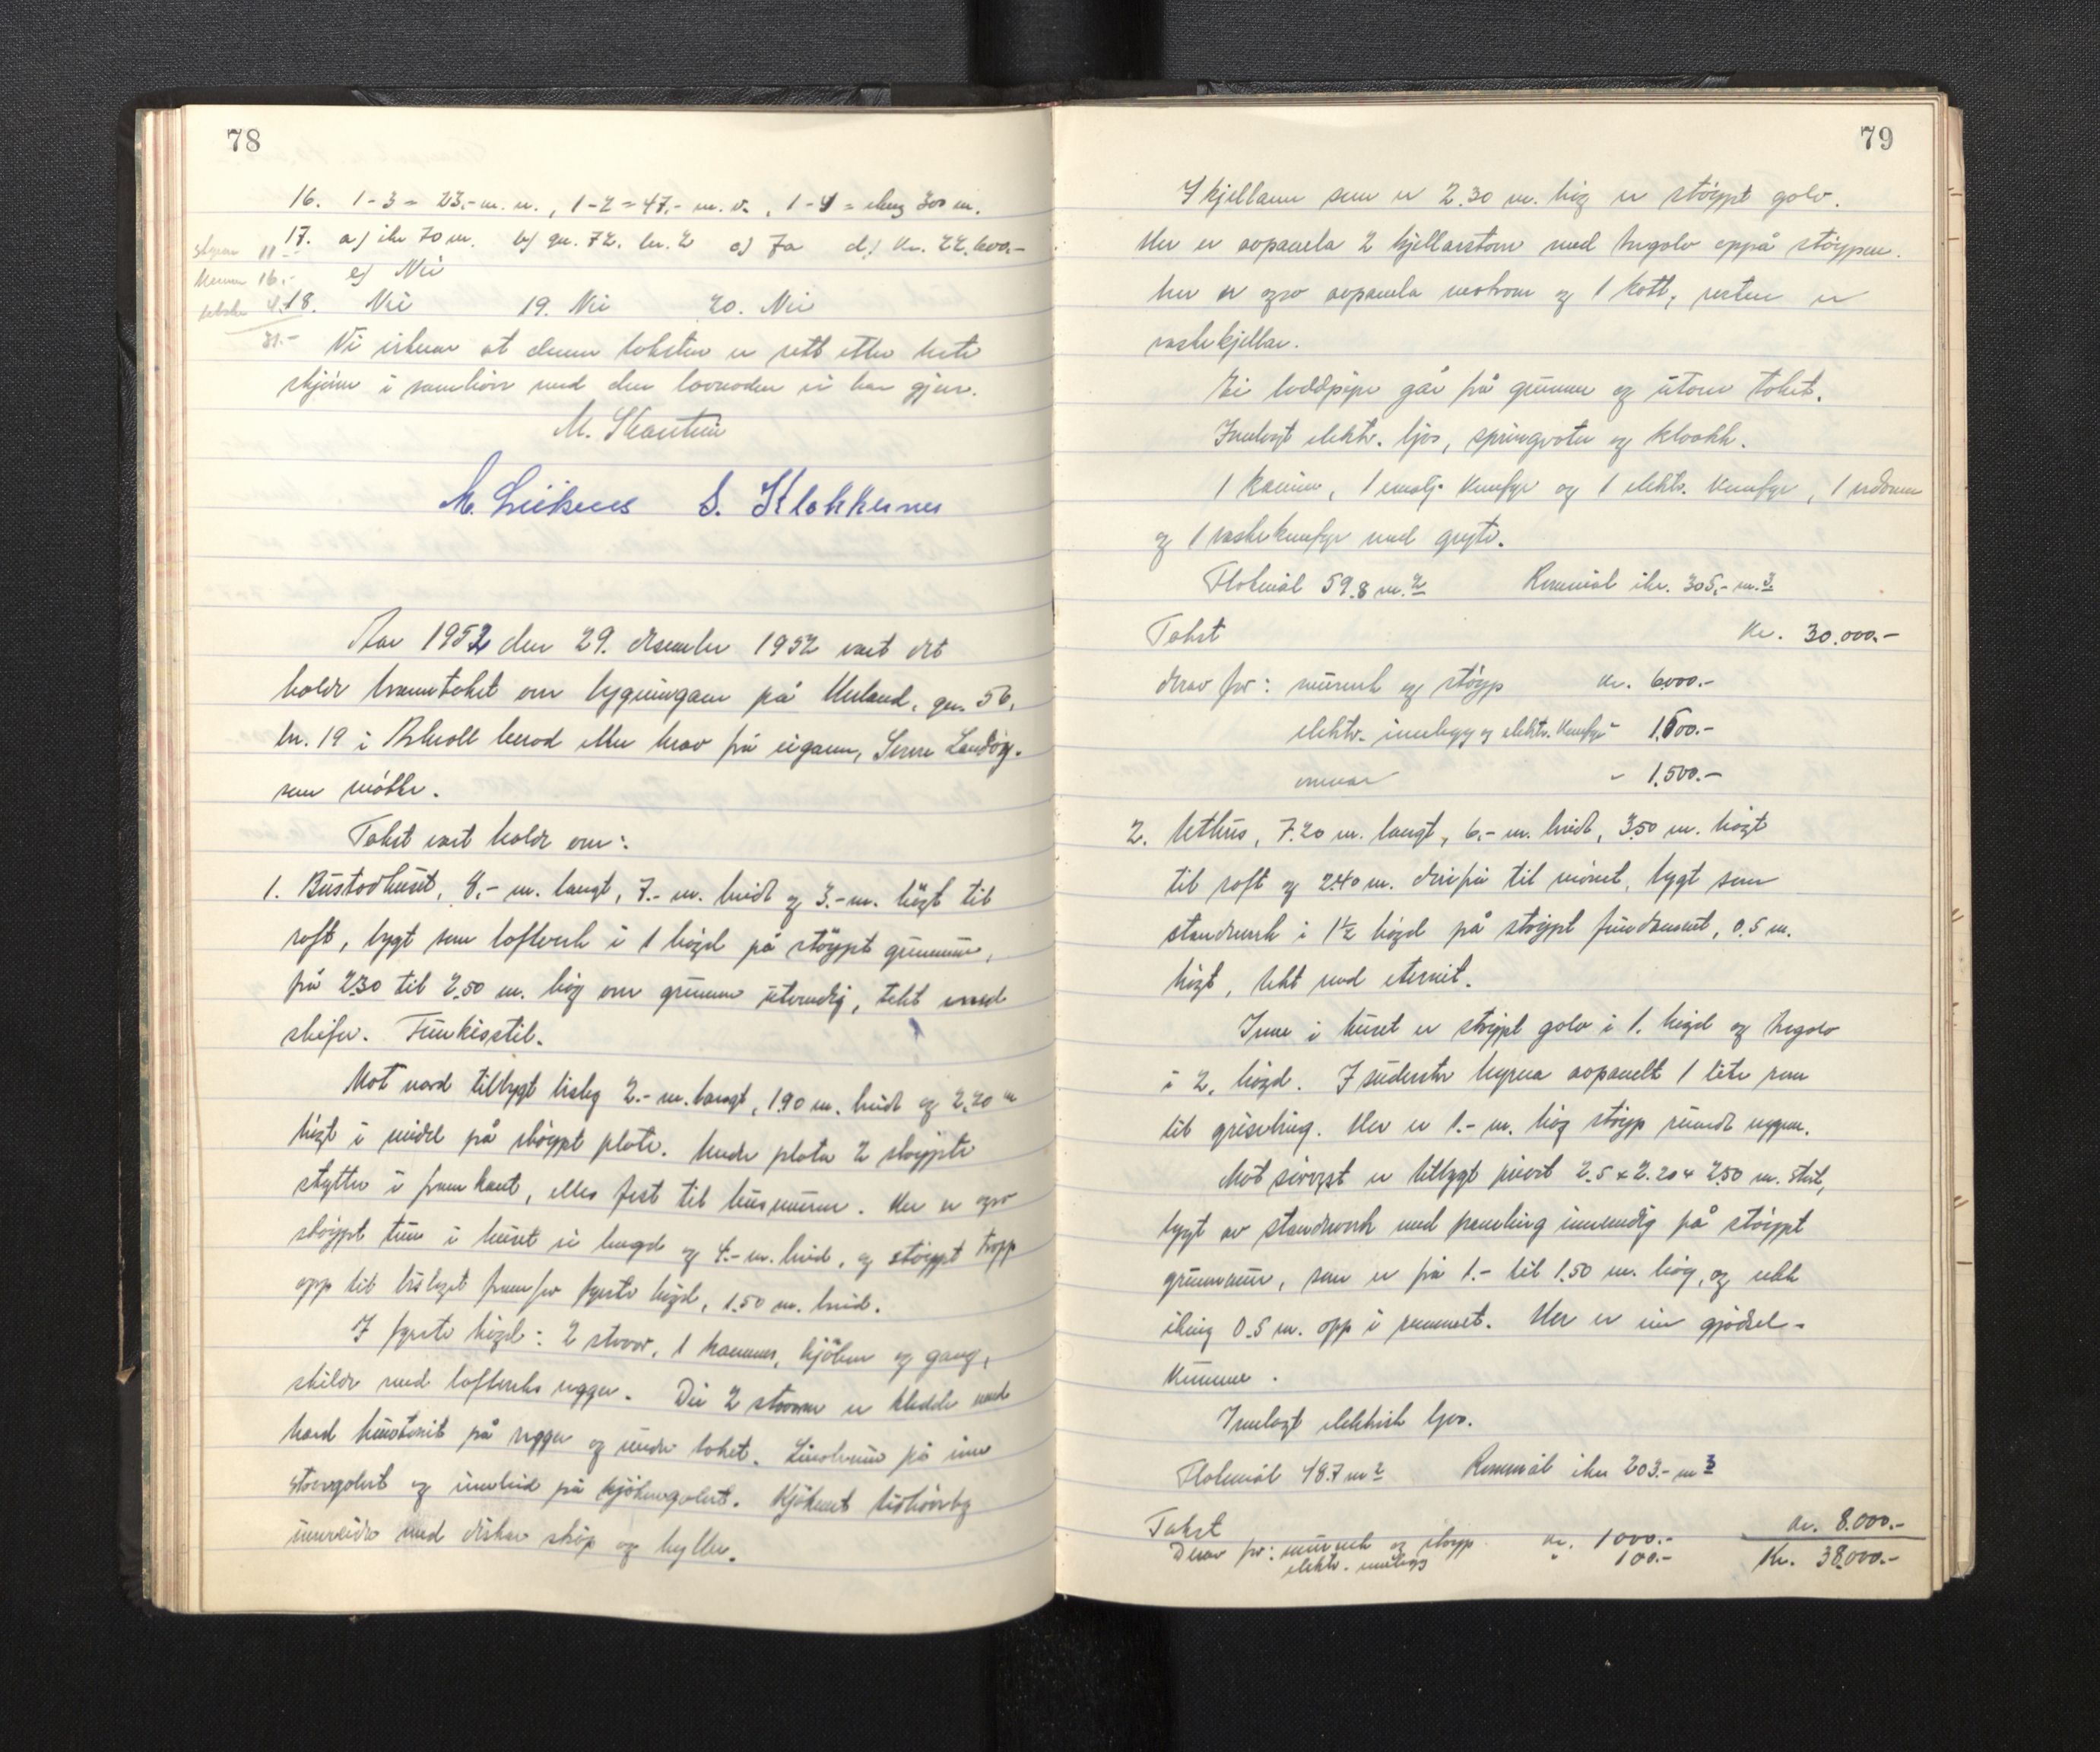 78
16. 1-3 = 23,- m. u., 1-2 = 47,- m. v., 1-4 = 300 m.
17. a) ikr 70 m. b) gn. 72, br. 2 c) Ja d.) kr. 22.600.-
11
16.-
e) Nei
4.-
18. Nei 19. Nei 20. Nei
31.-
Vi at denne taksten er sett etter beste
skjøn i samhøve med den lovnaden vi har gjeve.
M. Skartun
M. S. Klokkernes
Aar 1952 den 29. desember 1952 vart det
halde branntakst over bygningane på gn. 56,
br. 19 i herad etter krav frå eigaren,
som møtte.
Takst vart halde over:
1. Bustadhuset, 8,- m. langt, 7.- m. breidt og 3.- m. høgt til
roft, bygt som lofteverk i 1 høgd på støypt grunnmur,
frå 2.30 til 2.50 m. høg over grunnen utvendig, tekt med
skifer. Funkisstil.
Mot nord tilbygt bislag 2.- m. langt, 1.90 m. breidt og 2.20 m
høgt i midel på støypt plate. Under plata 2 støypte
stytter i framkant, elles fest til husmuren. Her er og so
støypt tun i huset si lengd og 4.- m. breid, og støypt tropp
opp til bislaget framfor fyrste høgd, 1.50 m. breid.
I fyrste høgd: 2 stovor, 1 kammer, kjøken og gang,
skilde med lofteverks veggar. Dei 2 stovone er kledde med
hard huntonit på veggar og under taket. Linoleum på eine
stovegolvet og innlaid på kjøkengolvet. Kjøkenet tidhøveleg
innreidd med diskar skåp og hyller.
79
I kjellaren som er 2.30 m. høg er støypt golv.
Her er avpanela 2 kjellarstover med tregolv oppå støypen.
her er og so avpanela matrom og 1 kott, resten er
vaskekjellar.
Ei loddpipe går frå grunnen og utover taket.
Innlagt elektr. ljos, springvatn og kloakk.
1 kamin, 1 emalj. komfyr og 1 elektr. komfyr, 1 vedomn
og 1 vaskekomfyr med gryte.
Flatemål 59.8 m.2 Rommål ikr. 305,- m.3
Takst Kr. 30.000.-
derav for: murverk og støyp kr. 6000.-
elektr. innlegg og elektr. komfyr 1.600.-
omnar " 1.500.-
2. Uthus, 7.20 m. langt, 6.- m. breidt, 3.50 m. høgt
til roft og 2.40 m. derifrå til mønet, bygt som
standverk i 1½ høgd på støypt fundament, 0.5 m.
høgt, tekt med eternit.
Inne i huset er støypt golv i 1. høgd og tregolv
i 2. høgd. I hyrna avpanelt 1 lite rom
til grisebing. Her er 1.- m. høg støyp rundt veggen.
Mot er tilbygt privet 2.5 x 2.20 x 2.50 m. stort,
bygt av standverk med paneling innvendig på støypt
grunnmur, som er frå 1.- til 1.50 m. høg, og
0.5 m. opp i rommet. Her er inn gjødsel-
kumme.
Innlagt elektrisk ljos.
Flatemål 48.7 m2 Rommål ikr 203.- m3
Takst kr. 8.000.-
Derav for: murverk og støyp kr. 1000.-
elektr. innlegg " 100.- Kr. 38.000.-